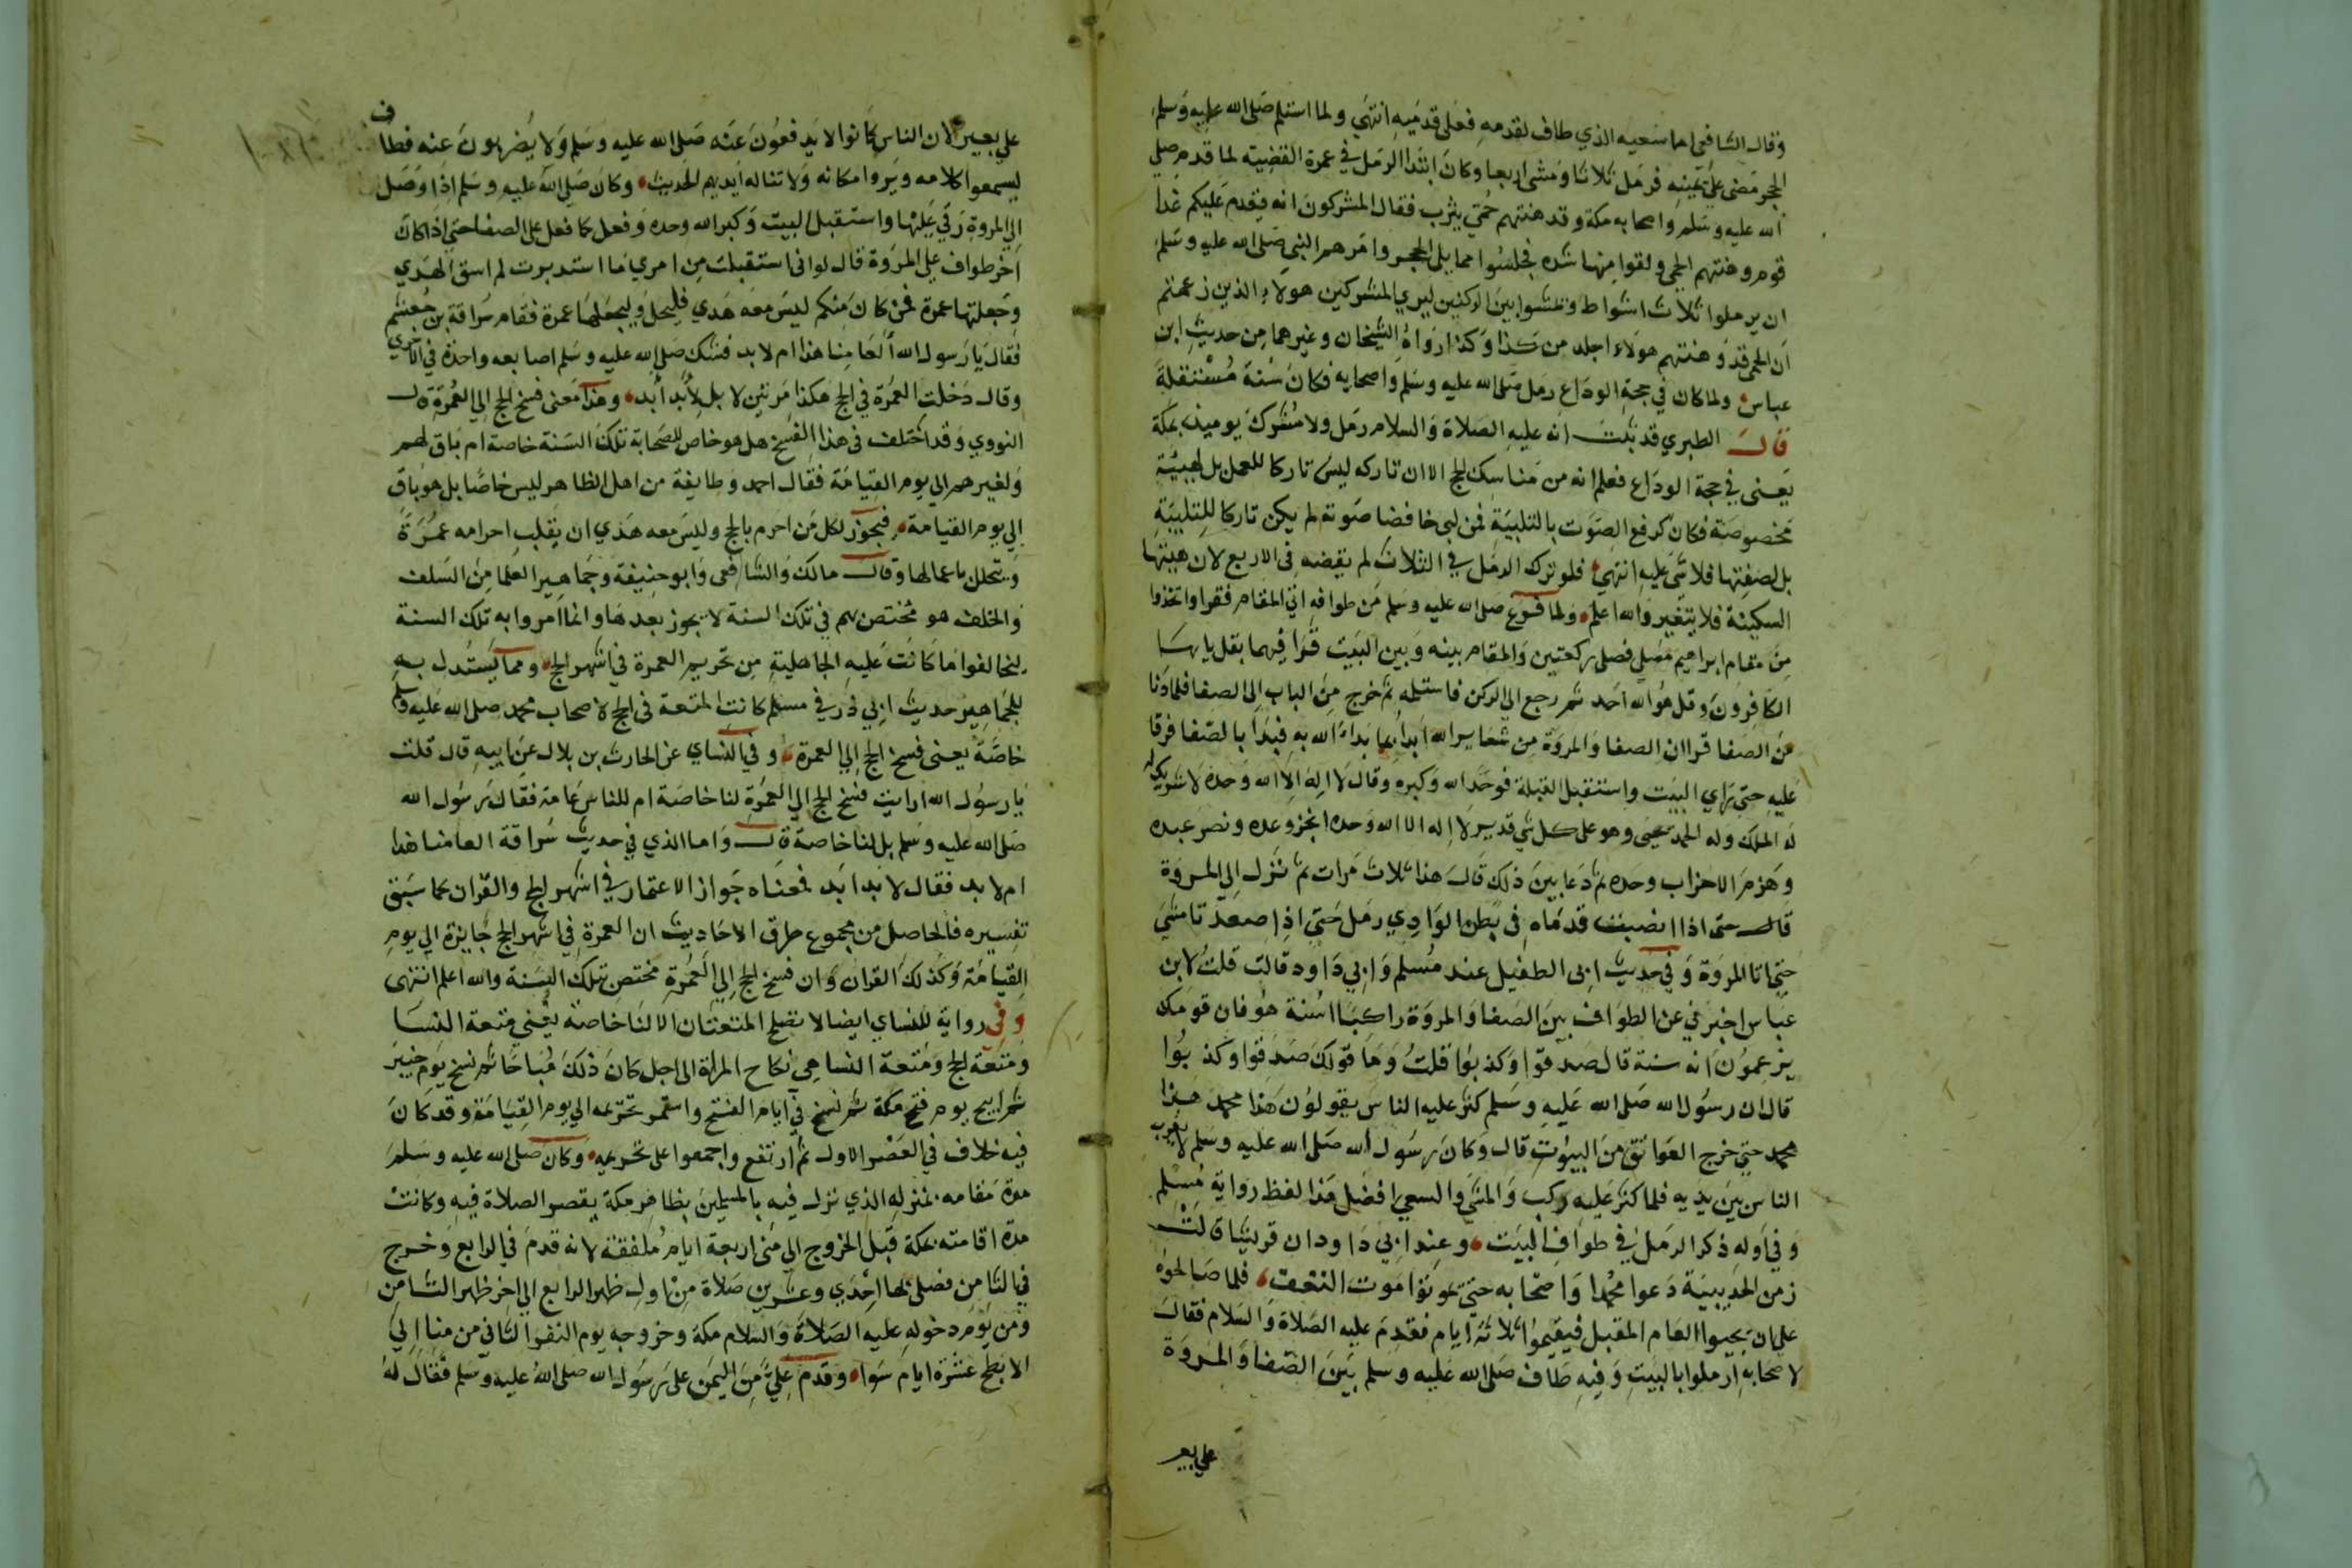 وقال الشافعي اما سعيه الذي طاف لقدمه فعلى قدميه انتهى ولما استلم صلى الله عليه وسلم
الحجر مضى على يمينه فرمل ثلاثا ومشى اربعا وكان ابتدا الرمل في عمرة القضية لما قدم صلى
الله عليه وسلم واصحابه مكة وقد هنتهم حمى يثرب فقال المشركون انه يقدم عليكم غدا
قوم وهنتهم الحمى ولقوا منها شده فجلسوا مما يلى الحجر وامرهم النبي صلى الله عليه وسلم
ان يرملوا ثلاث اشواط ويمشوا بين الركنين ليري المشركين هولاء الذين زعمتم
ان الحمى قد وهنتهم هولاء اجلد من كذا وكذا رواه الشيخان وغيرهما من حديث ابن
عباس ولما كان في حجة الوداع رمل صلى الله عليه وسلم واصحابه فكان سنة مستقلة
قال الطبري قد ثبت انه عليه الصلاة والسلام رمل ولا مشرك يوميذ بمكة
يعنى في حجة الوداع فعلم انه من مناسك الحج الا ان تاركه ليس تاركا للعمل بل لهيئة
مخصوصة فكان كرفع الصوت بالتلبية فمن لبى خافضا صوته لم يكن تاركا للتلبية
بل لصفتها فلا شى عليه انتهى فلو ترك الرمل في الثلاث لم يقضه في الاربع لان هيئتها
السكينة فلا يتغير والله اعلم ولما فرغ صلى الله عليه وسلم من طوافه اتي المقام فقرا واتخذوا
من مقام ابراهيم مصلى فصلى ركعتين والمقام بينه وبين البيت قرا فيهما بقل يا يها
الكافرون وقل هو الله احد ثم رجع الي الركن فاستلمه ثم خرج من الباب الى الصفا فلما دنا
من الصفا قرا ان الصفا والمروة من شعاير الله ابدا بما بدا الله به فبدا بالصفا فرقا
عليه حتى راي البيت واستقبل القبلة فوحد الله وكبره وقال لا اله الا الله وحده لا شريك له
له الملك وله الحمد يحيى وهو على كل شي قدير لا اله الا الله وحده انجز وعده ونصر عبده
وهزم الاحزاب وحده ثم دعا بين ذلك قال هذا ثلاث مرات ثم نزل الى المروة
قال حتى اذا انصبت قدماه في بطن الوادي رمل حتى اذا صعدتا مشى
حتى اتا المروة وفي حديث ابى الطفيل عند مسلم وابي داود قالت قلت لابن
عباس اخبرني عن الطواف بين الصفا والمروة راكبا اسنة هو فان قومك
يزعمون انه سنة قال صدقوا وكذبوا قلت وما قولك صدقوا وكذبوا
قال ان رسول الله صلى الله عليه وسلم كثر عليه الناس يقولون هذا محمد هذا
محمد حتي خرج العواتق من البيوت قال وكان رسول الله صلى الله عليه وسلم لا يضرب
الناس بين يديه فلما كثر عليه ركب والمشى والسعي افضل هذا لفظ رواية مسلم
وفي اوله ذكر الرمل في طواف البيت وعند ابي داود ان قريشا قالت
زمن الحديبية دعوا محمدا واصحابه حتى يموتوا موت النغف فلما صالحوه
على ان يجيوا العام المقبل فيقيموا ثلاثة ايام فقدم عليه الصلاة والسلام فقال
لاصحابه ارملوا بالبيت وفيه طاف صلى الله عليه وسلم بين الصفا والمروة
على بعير
على بعير لان الناس كانوا لا يدفعون عنه صلى الله عليه وسلم ولا يضربون عنه فطاف
ليسمعوا كلامه ويروا مكانه ولا تناله ايديهم الحديث وكان صلى الله عليه وسلم اذا وصل
الي المروة رقي عليها واستقبل البيت وكبر الله وحده وفعل كما فعل على الصفا حتى اذا كان
اخر طواف على المروة قال لو انى استقبلت من امري ما استدبرت لم اسق الهدي
وجعلتها عمرة فمن كان منكم ليس معه هدي فليحل وليجعلها عمرة فقام سراقة بن جعشم
فقال يا رسول الله العامنا هذا ام لابد فشبك صلى الله عليه وسلم اصابعه واحدة في الاخري
وقال دخلت العمرة في الحج هكذا مرتين لا بل لابد ابد وهذا معنى فسخ الحج الي العمرة قال
النووي وقد اختلف في هذا الفسخ هل هو خاص للصحابة تلك السنة خاصة ام باق لهم
ولغيرهم الي يوم القيامة فقال احمد وطايفة من اهل الظاهر ليس خاصا بل هو باق
الي يوم القيامة فيجوز لكل من احرم بالحج وليس معه هدي ان يقلب احرامه عمرة
ويتحلل باعمالها وقال مالك والشافعى وابو حنيفة وجماهير العلما من السلف
والخلف هو مختص بهم في تلك السنة لا يجوز بعدها وانما امروا به تلك السنة
ليخالفوا ما كانت عليه الجاهلية من تحريم العمرة في اشهر الحج ومما يستدل به
للجماهير حديث ابي ذر في مسلم كانت المتعة في الحج لاصحاب محمد صلى الله عليه وسلم
خاصة يعنى فسخ الحج الي العمرة وفي النساي عن الحارث بن بلال عن ابيه قال قلت
يا رسول الله ارايت فسخ الحج الي العمرة لنا خاصة ام للناس عامة فقال رسول الله
صلى الله عليه وسلم بل لنا خاصة قال واما الذي في حديث سراقة العامنا هذا
ام لابد فقال لابد ابد فمعناه جواز الاعتمار في اشهر الحج والقران كما سبق
تفسيره فالحاصل من مجموع طرق الاحاديث ان العمرة في اشهر الحج جايزة الي يوم
القيامة وكذلك القران وان فسخ الحج الي العمرة مختص بتلك السنة والله اعلم انتهى
وفي رواية للنساي ايضا لا تصلح المتعتان الا لنا خاصة يعني متعة النسا
ومتعة الحج ومتعة النسا هى نكاح المراة الى اجل كان ذلك مباحا ثم نسخ يوم خيبر
ثم ابيح يوم فتح مكة ثم نسخ في ايام الفتح واستمر تحريمه الي يوم القيامة وقد كان
فيه خلاف في العصر الاول ثم ارتفع واجمعوا على تحريمه وكان صلى الله عليه وسلم
مدة مقامه بمنزله الذي نزل فيه بالمسلمين بظاهر مكة يقصر الصلاة فيه وكانت
مدة اقامته بمكة قبل الخروج الي منى اربعة ايام ملفقة لانه قدم في الرابع وخرج
في الثامن فصلى بها احدي وعشرين صلاة من اول ظهر الرابع الي اخر ظهر الثامن
ومن يوم دخوله عليه الصلاة والسلام مكة وخروجه يوم النفر الثاني من منا الي
الابطح عشرة ايام سوا وقدم على من اليمن على رسول الله صلى الله عليه وسلم فقال له